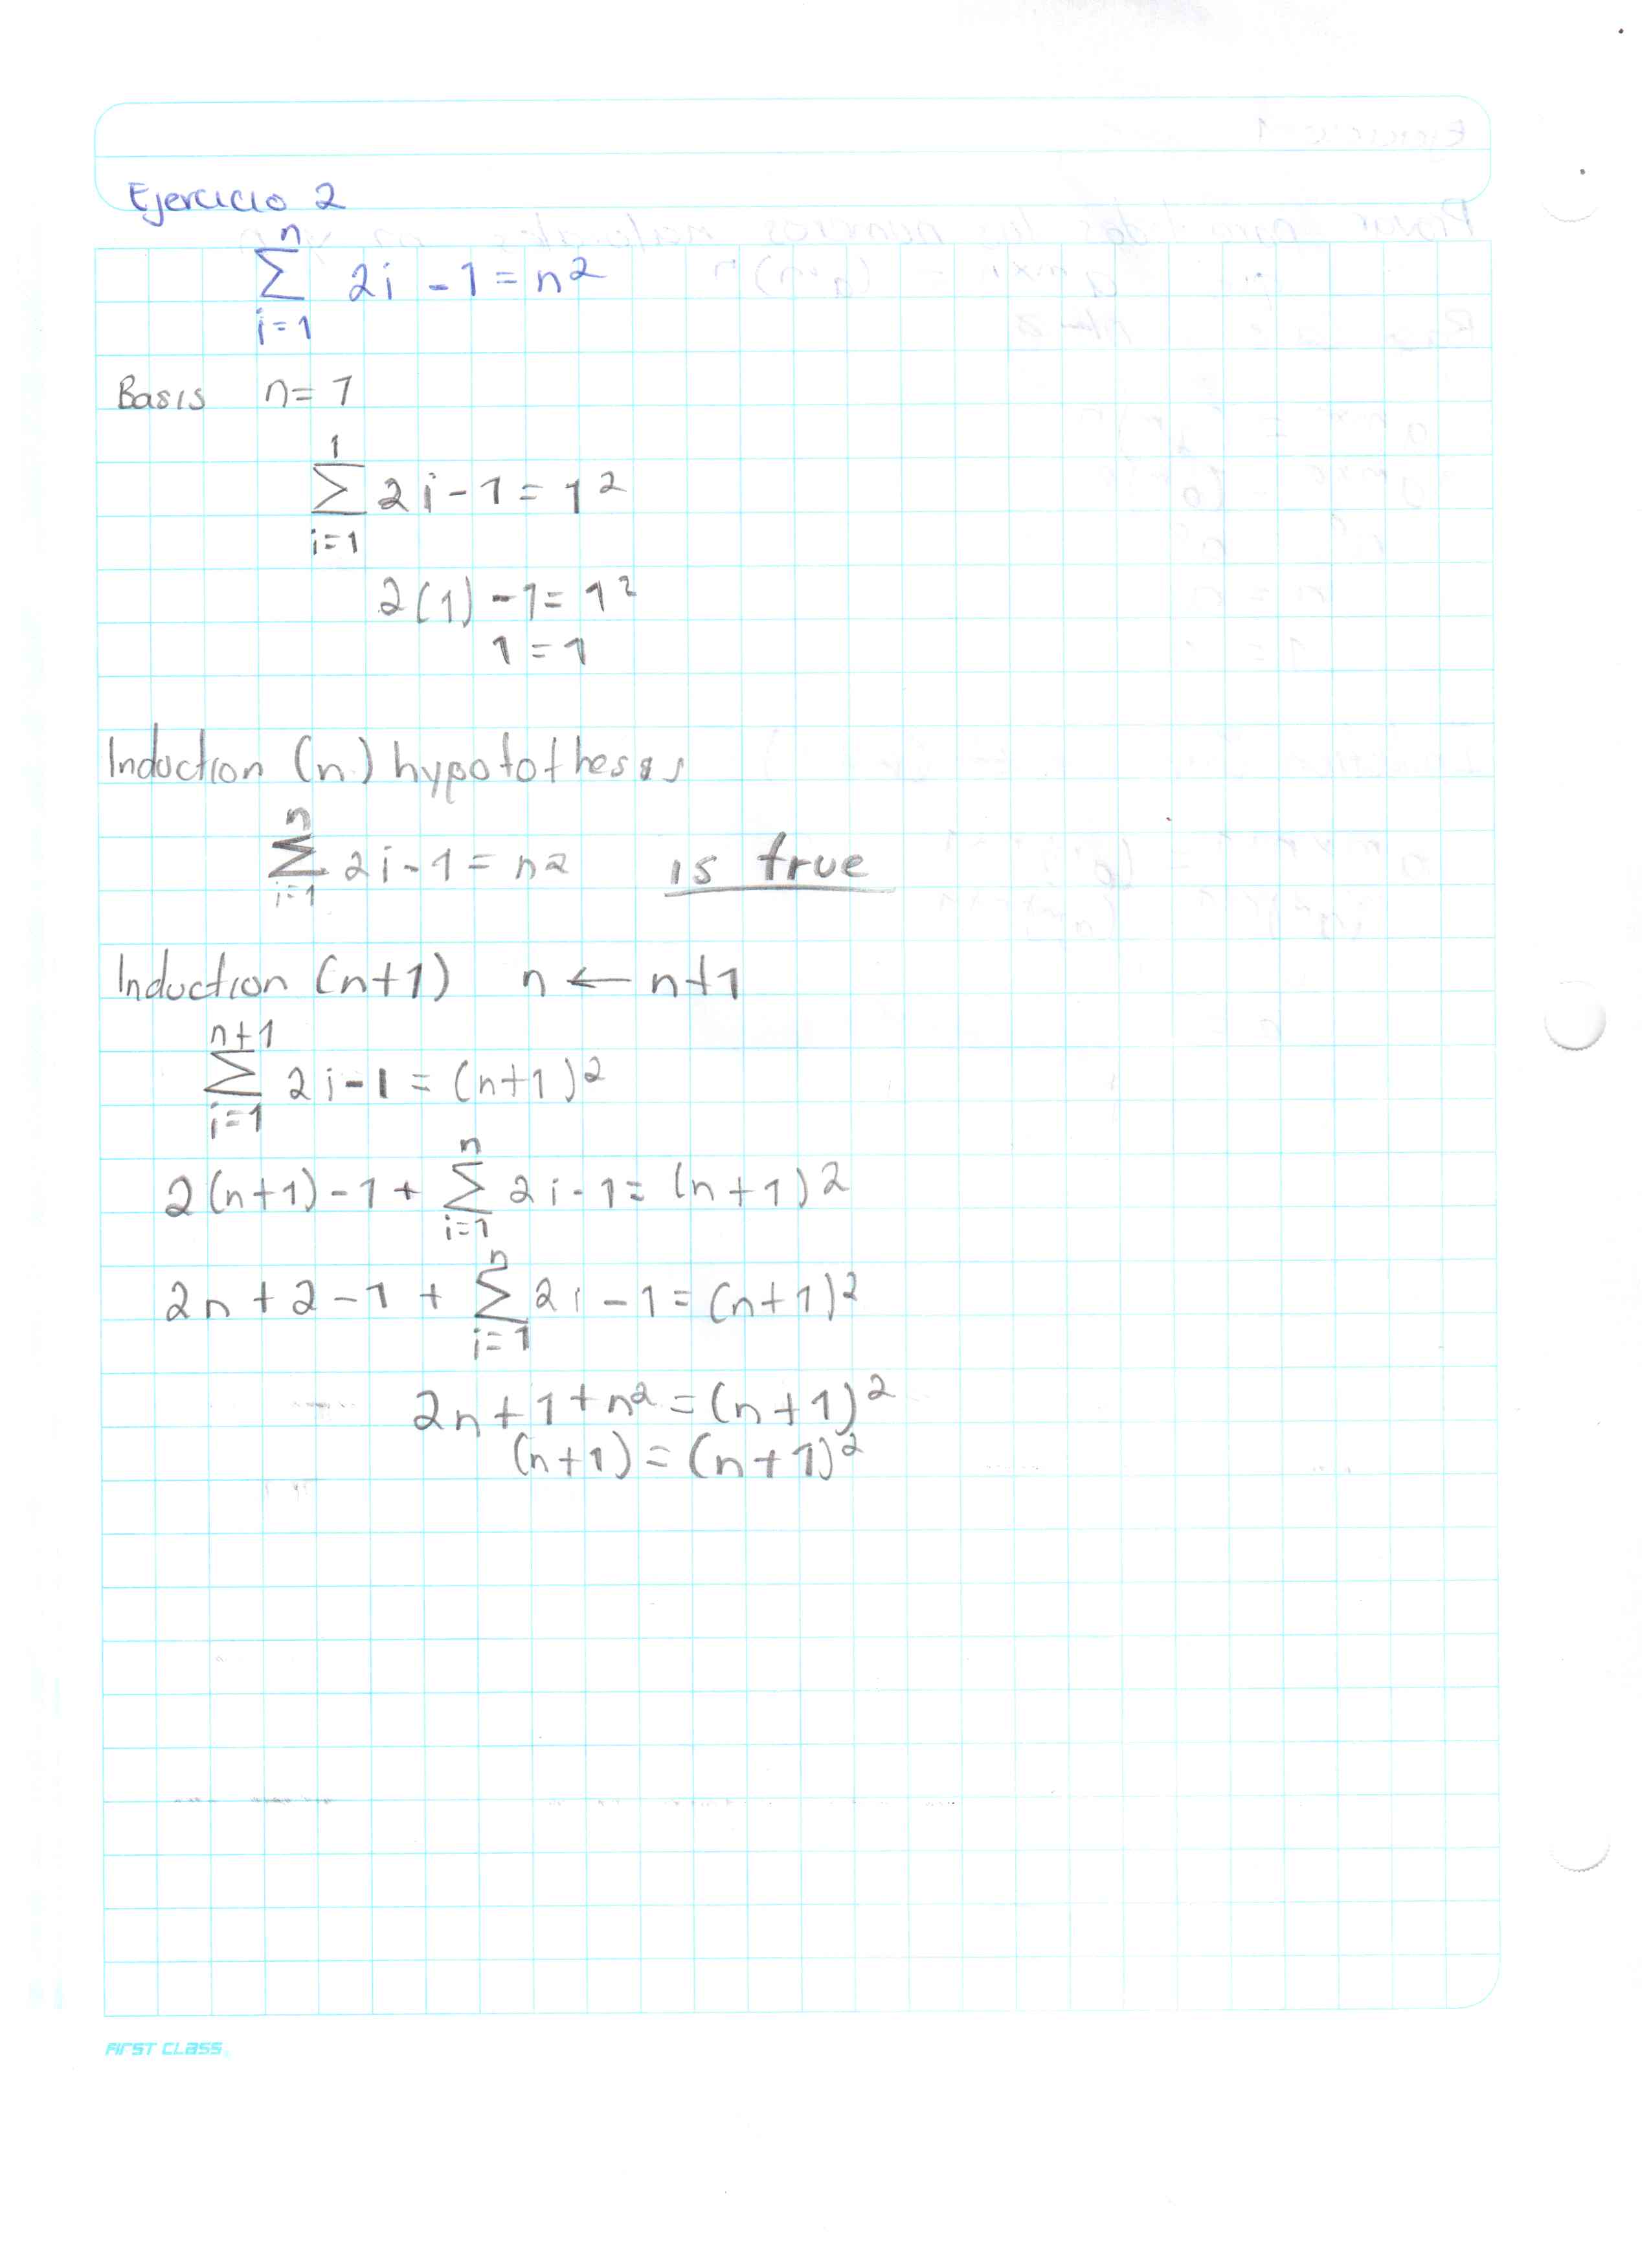 Ejercicio 2
n
∑ 2i - 1 = n2
i=1
Basis n= 1
1
∑ 2i - 1 = 1²
i=1
2(1) - 1 = 1²
1 = 1
Induction (n) hypotothesis
n
∑ 2i - 1 = n2 is true
i=1
Induction (n+1) n ← n+1
n+1
∑ 2i - 1 = (n+1)²
i=1
n
2(n+1) - 1 + ∑ 2i - 1 = (n+1)2
i=1
n
2n + 2 - 1 + ∑ 2i - 1 = (n+1)²
i=1
2n + 1 + n² = (n+1)²
(n+1) = (n+1)²
FIRST CLASS